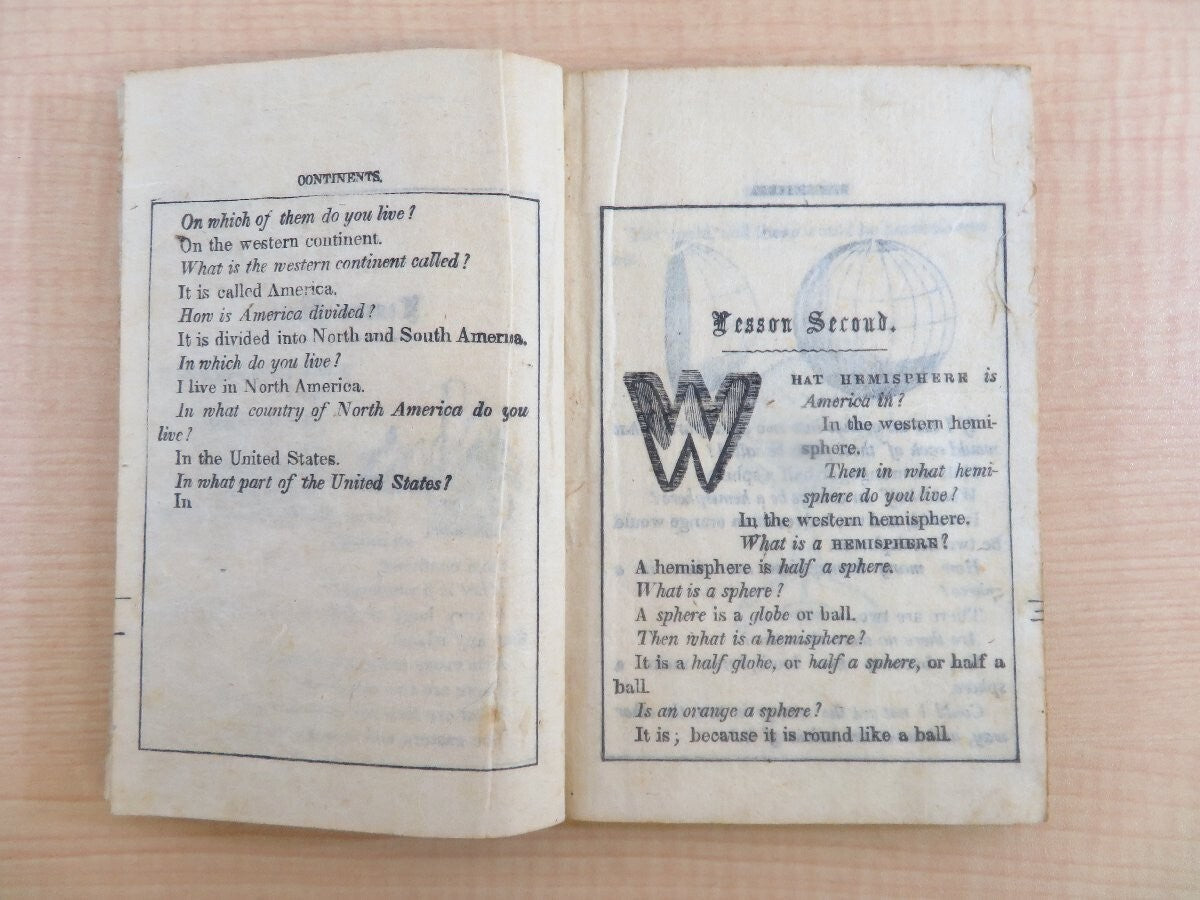 CONTINENTS.
On which of them do you live?
On the western continent.
What is the western continent called?
It is called America.
How is America divided?
It is divided into North and South America.
In which do you live?
I live in North America.
In what country of North America do you
live?
In the United States.
In what part of the United States?
In
Lesson Second.
WHAT HEMISPHERE is
America in?
In the western hemi-
sphere.
Then in what hemi-
sphere do you live?
In the western hemisphere.
What is a HEMISPHERE?
A hemisphere is half a sphere.
What is a sphere?
A sphere is a globe or ball.
Then what is a hemisphere?
It is a half globe, or half a sphere, or half a
ball.
Is an orange a sphere?
It is; because it is round like a ball.